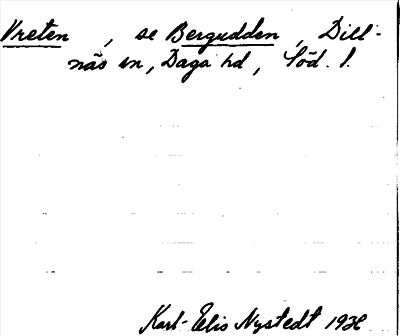 Vreten, se Bergudden, Dill-
näs sn, Daga hd, Söd. l.
Karl-Elis Nystedt 1936